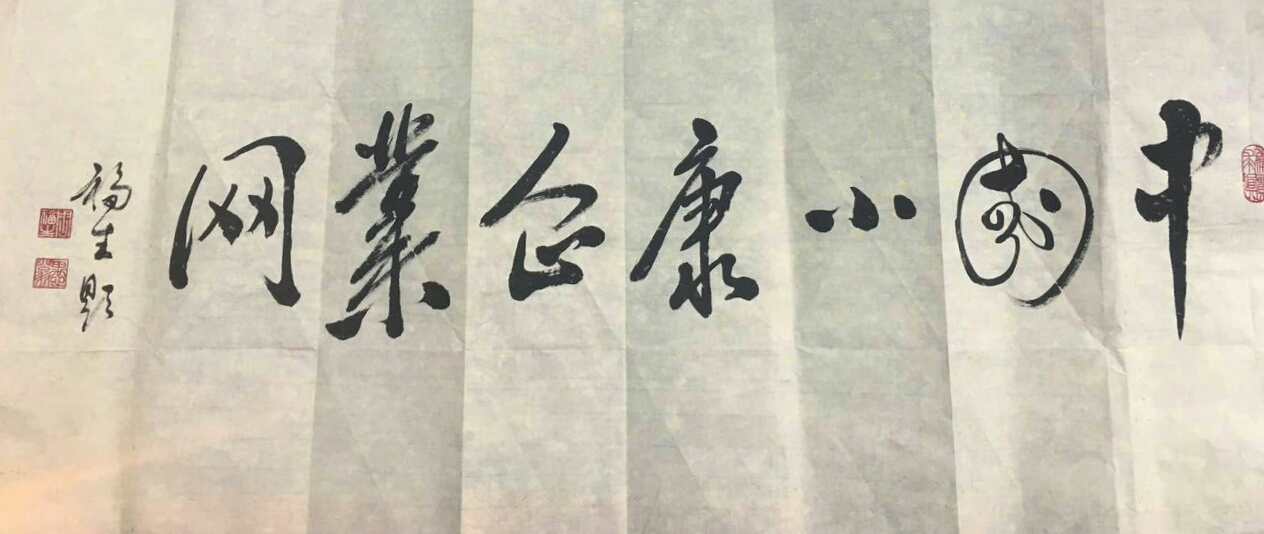 中國小康企業网
福生题